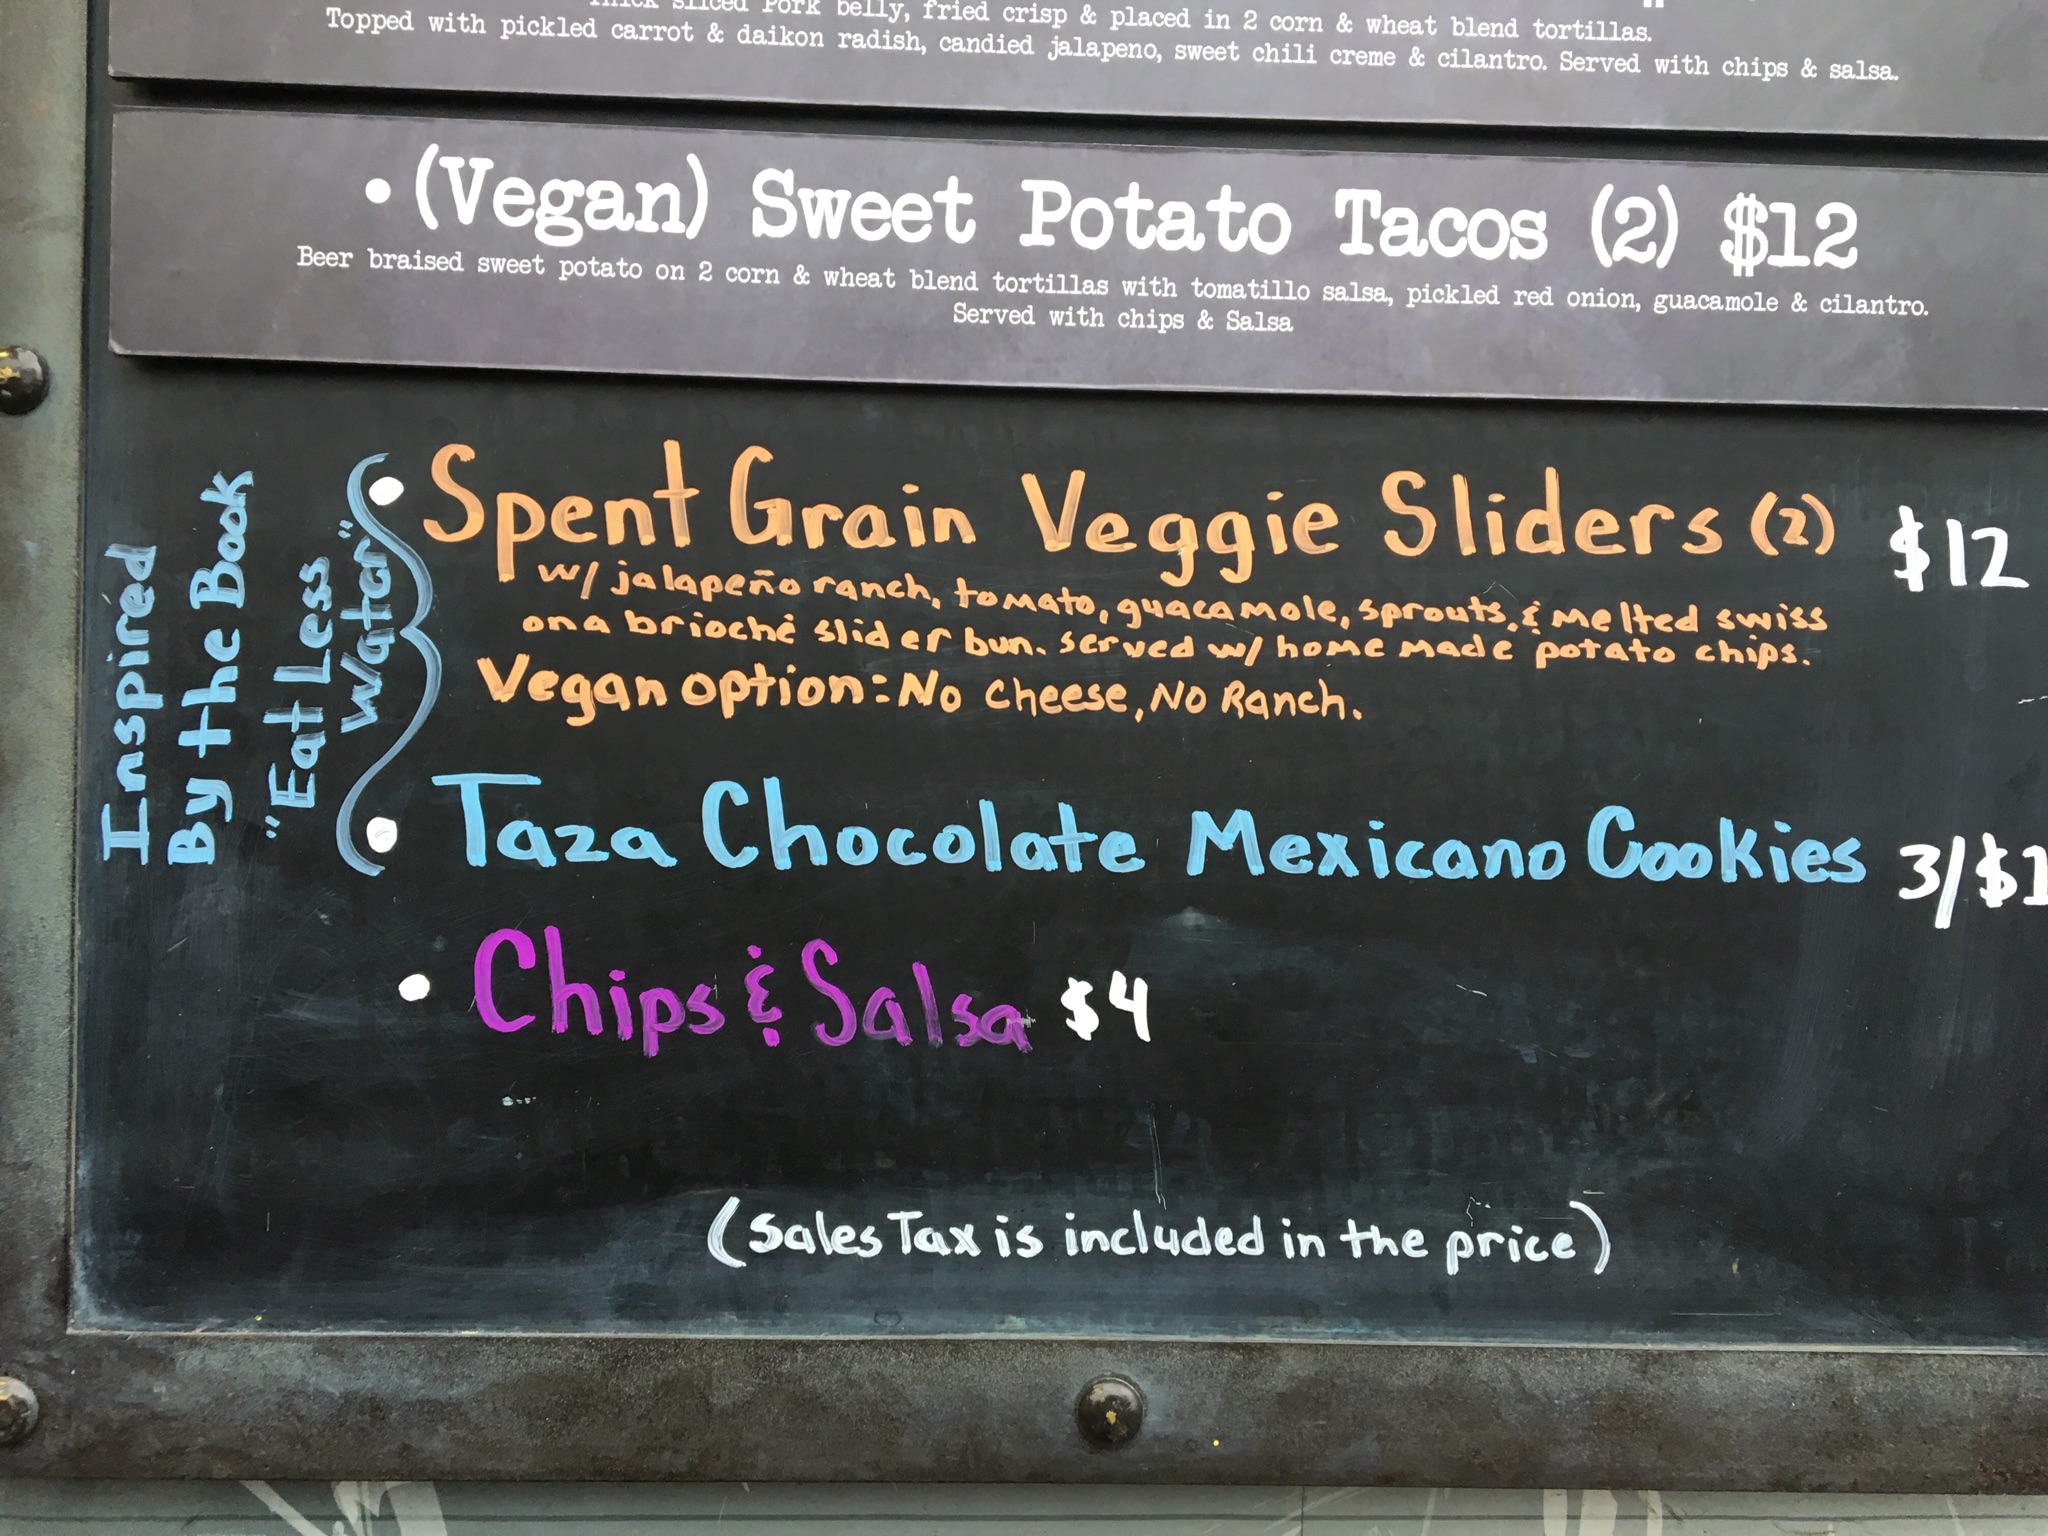 sliced Pork belly, fried crisp & placed in 2 corn & wheat blend tortillas.
Topped with pickled carrot & daikon radish, candied jalapeno, sweet chili creme & cilantro. Served with chips & salsa.
• (Vegan) Sweet Potato Tacos (2) $12
Beer braised sweet potato on 2 corn & wheat blend tortillas with tomatillo salsa, pickled red onion, guacamole & cilantro.
Served with chips & Salsa
Inspired
By the Book
"Eat Less
Water"
• Spent Grain Veggie Sliders (2) $12
w/ jalapeño ranch, tomato, guacamole, sprouts, & melted swiss
on a brioché slider bun. served w/ home made potato chips.
Vegan option: No Cheese, No Ranch.
• Taza Chocolate Mexicano Cookies 3/$1
• Chips & Salsa $4
(Sales Tax is included in the price)